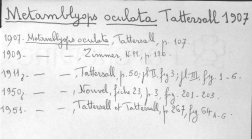 Metamblyops oculata Tattersall 1907
1907. Metamblyops oculata, Tattersall, p. 107
1909. — — , Zimmer, N.H., p. 116.
1911, — — , Tattersall, p. 50; pl. II, fig 3; pl. III, fig. 1-6.
1950, — — , Nouvel, fiche 23, p. 3. fig. 201-203.
1951. — — , Tattersall et Tattersall, p. 257 fig 64 A-G.